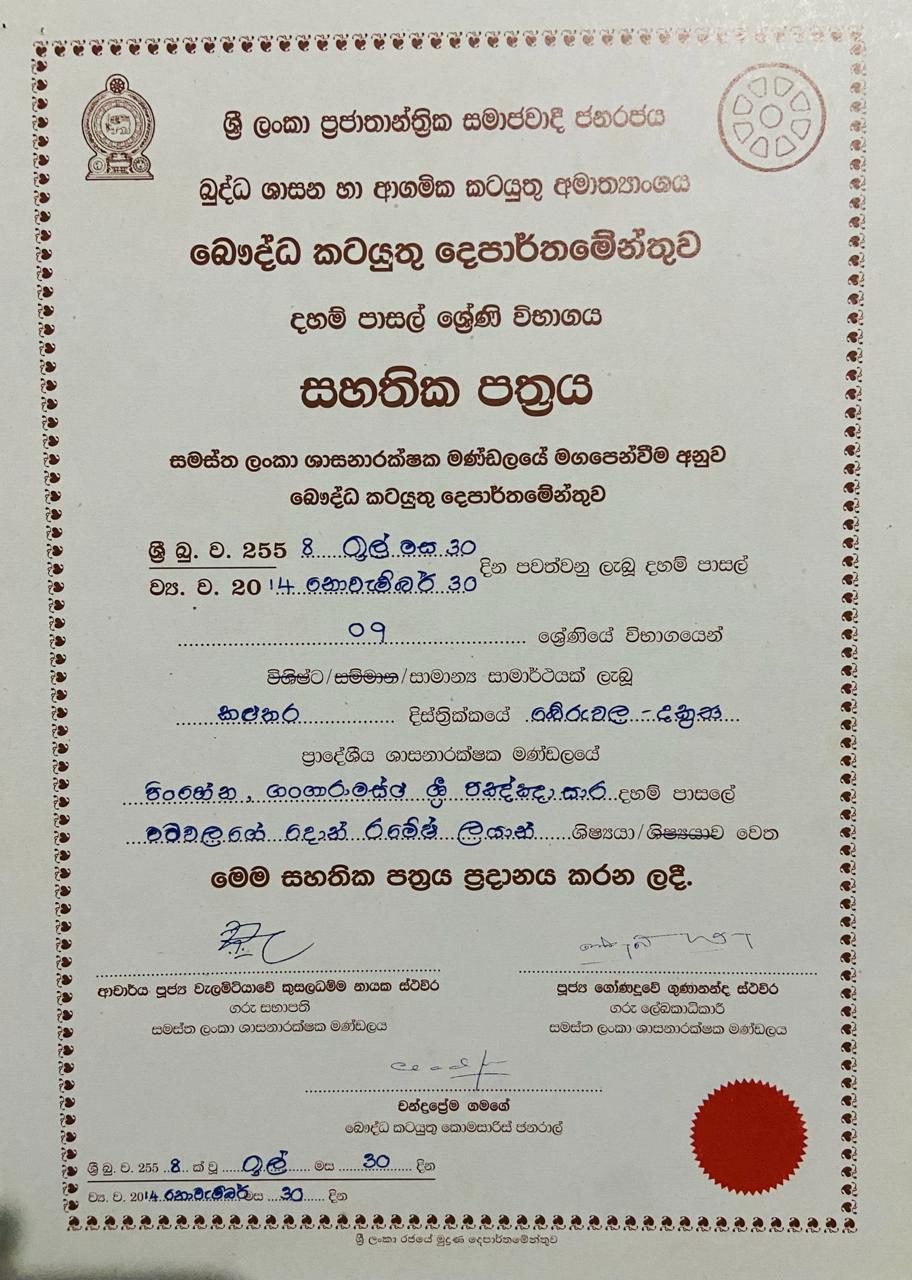 ශ්‍රී ලංකා ප්‍රජාතාන්ත්‍රික සමාජවාදී ජනරජය
බුද්ධ ශාසන හා ආගමික කටයුතු අමාත්‍යාංශය
බෞද්ධ කටයුතු දෙපාර්තමේන්තුව
දහම් පාසල් ශ්‍රේණි විභාගය
සහතික පත්‍රය
සමස්ත ලංකා ශාසනාරක්ෂක මණ්ඩලයේ මගපෙන්වීම අනුව
බෞද්ධ කටයුතු දෙපාර්තමේන්තුව
ශ්‍රී බු. ව. 255 8 ඉල් මස 30
ව්‍ය. ව. 20 14 නොවැම්බර් 30 දින පවත්වනු ලැබූ දහම් පාසල්
09 ශ්‍රේණියේ විභාගයෙන්
විශිෂ්ට/සම්මාන/සාමාන්‍ය සාමාර්ථයක් ලැබූ
කළුතර දිස්ත්‍රික්කයේ බේරුවල -
ප්‍රාදේශීය ශාසනාරක්ෂක මණ්ඩලයේ
පිංහේන, ගංගාරාමස්ථ ශ්‍රී පඤ්ඤාසාර දහම් පාසලේ
දොන් රමේෂ් ලයාන් ශිෂ්‍යයා/ශිෂ්‍යයාව වෙත
මෙම සහතික පත්‍රය ප්‍රදානය කරන ලදී.
ආචාර්ය පූජ්‍ය වැලමිටියාවේ කුසලධම්ම නායක ස්ථවිර
ගරු සභාපති
සමස්ත ලංකා ශාසනාරක්ෂක මණ්ඩලය
පූජ්‍ය ගෝණදූවේ ගුණානන්ද ස්ථවිර
ගරු ලේඛකාධිකාරී
සමස්ත ලංකා ශාසනාරක්ෂක මණ්ඩලය
චන්ද්‍රප්‍රේම ගමගේ
බෞද්ධ කටයුතු කොමසාරිස් ජනරාල්
ශ්‍රී බු. ව. 255 8 ක් වූ ඉල් මස 30 දින
ව්‍ය. ව. 2014 නොවැම්බර් මස 30 දින
ශ්‍රී ලංකා රජයේ මුද්‍රණ දෙපාර්තමේන්තුව